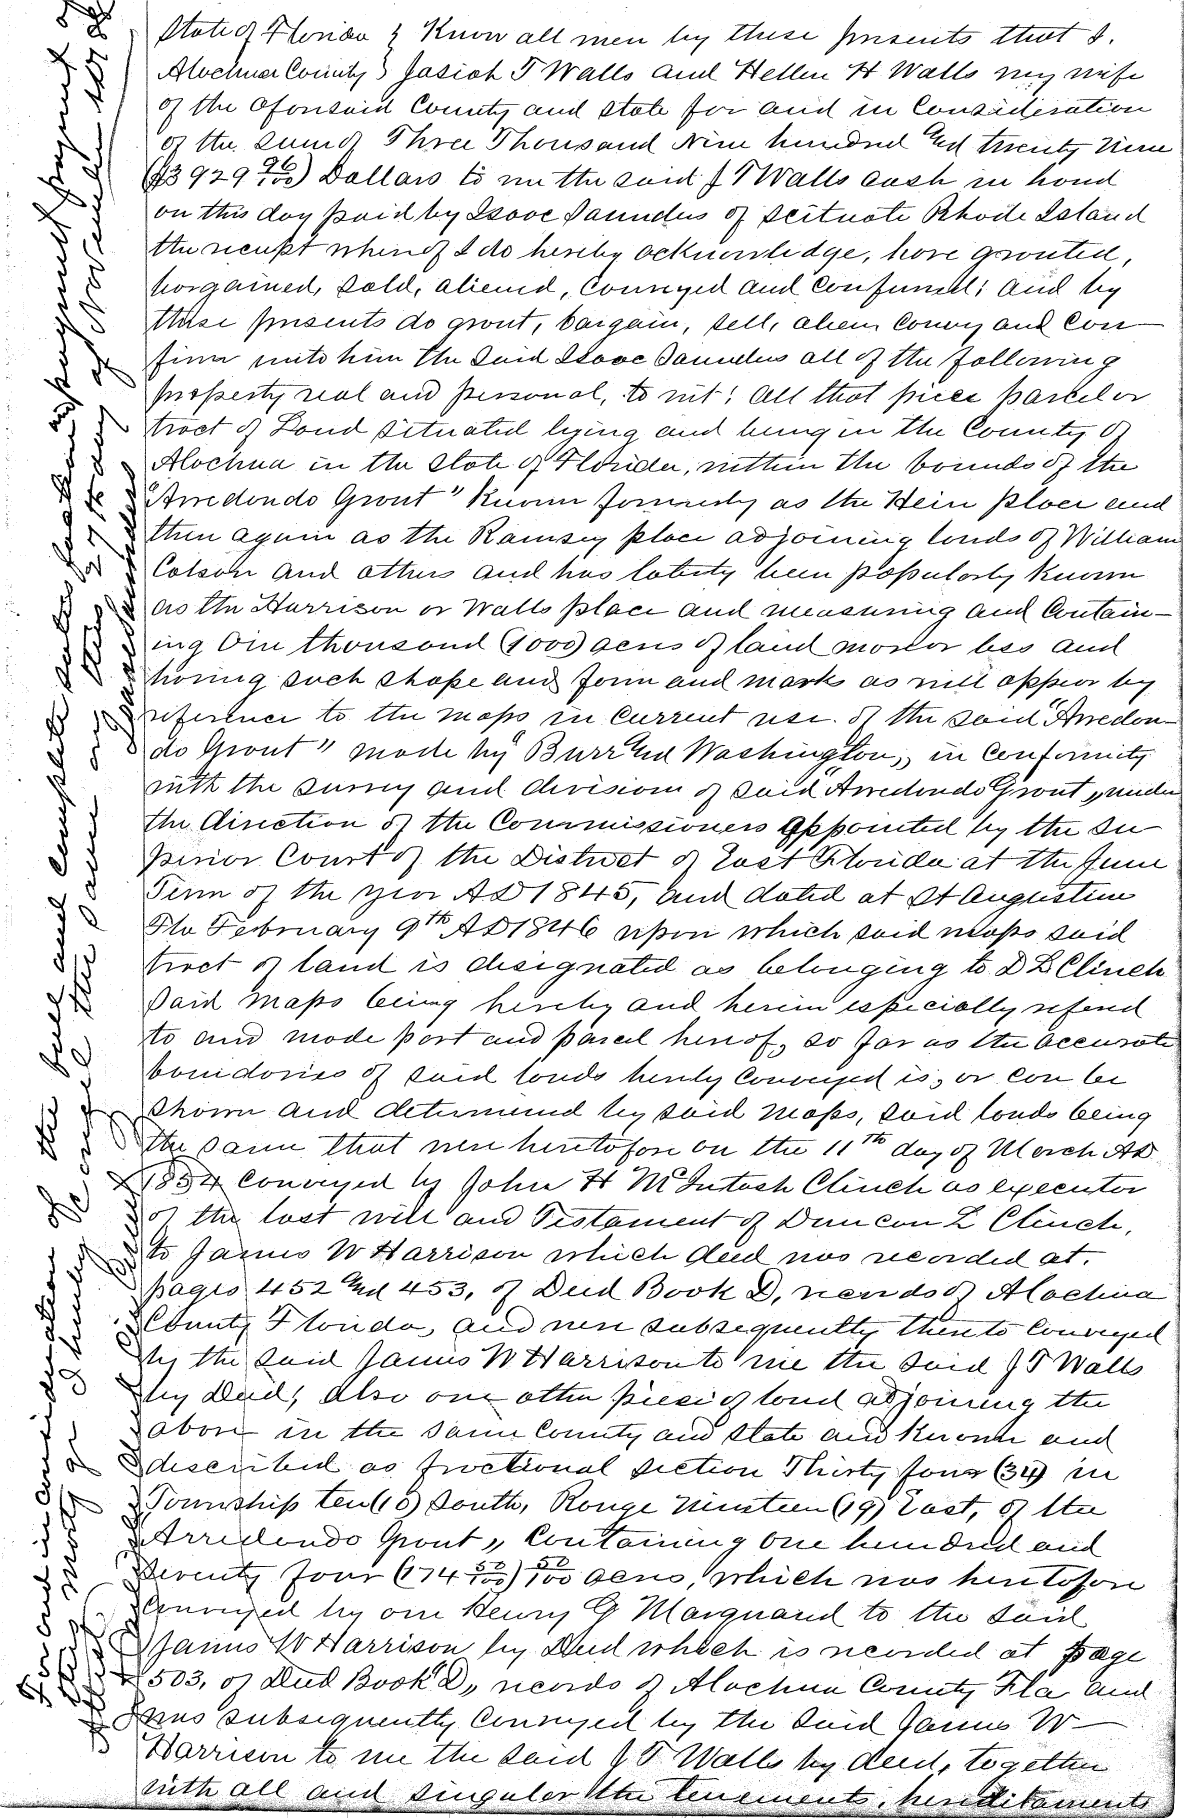 State of Florida } Know all men by these presents that I.
Alachua County } Josiah T Walls and Hellen H Walls my wife
of the aforesaid County and state for and in Consideration
of the sum of Three Thousand Nine hundred and twenty nine
($3929 96/100) Dollars to me the said J T Walls cash in hand
on this day paid by Isaac Saunders of Scituate Rhode Island
the receipt whereof I do hereby acknowledge, have granted,
bargained, sold, aliened, conveyed and confirmed; and by
these presents do grant, bargain, sell, alien convey and Con-
firm unto him the said Isaac Saunders all of the following
property real and personal, to wit; All that piece parcel or
tract of Land situated lying and being in the County of
Alachua in the State of Florida, within the bounds of the
"Arredondo Grant" Known formerly as the Hein place and
then again as the Ramsey place adjoining lands of William
Colson and others and has lately been popularly Known
as the Harrison or Walls place and measuring and Contain-
ing One thousand (1000) acres of land more or less and
having such shape and form and marks as will appear by
reference to the maps in Current use of the said "Arredon-
do Grant" made by "Burr and Washington," in Conformity
with the survey and division of said "Arredondo Grant" under
the direction of the Commissioners appointed by the Su-
perior Court of the District of East Florida at the June
Term of the year AD 1845, and dated at St Augustine
Fla February 9th AD 1846 upon which said maps said
tract of land is designated as belonging to D L Clinch
Said maps being hereby and herein especially referred
to and made part and parcel hereof, so far as the accurate
boundaries of said lands hereby Conveyed is, or can be
Shown and determined by said maps, said lands being
the same that were heretofore on the 11th day of March AD
1854 Conveyed by John H McIntosh Clinch as executor
of the last will and Testament of Duncan L Clinch,
to James W Harrison which deed was recorded at.
pages 452 and 453, of Deed Book D, records of Alachua
County Florida, and were subsequently thereto Conveyed
by the said James W Harrison to me the said J T Walls
by Deed; also one other piece of land adjoining the
above in the same County and State and Known and
described as fractional section Thirty four (34) in
Township ten (10) South, Range nineteen (19) East, of the
"Arredondo Grant", Containing one hundred and
Seventy four (174 50/100) 50/100 acres, which was heretofore
Conveyed by one Henry G Marquard to the said
James W Harrison by Deed which is recorded at page
503, of Deed Book "D", records of Alachua County Fla and
was subsequently Conveyed by the said James W
Harrison to me the said J T Walls by deed, together
with all and singular the tenements, hereditaments
For and in consideration of the full and complete satisfaction and payment of
this mortgage I hereby cancel the same on this 27th day of November
Isaac Saunders